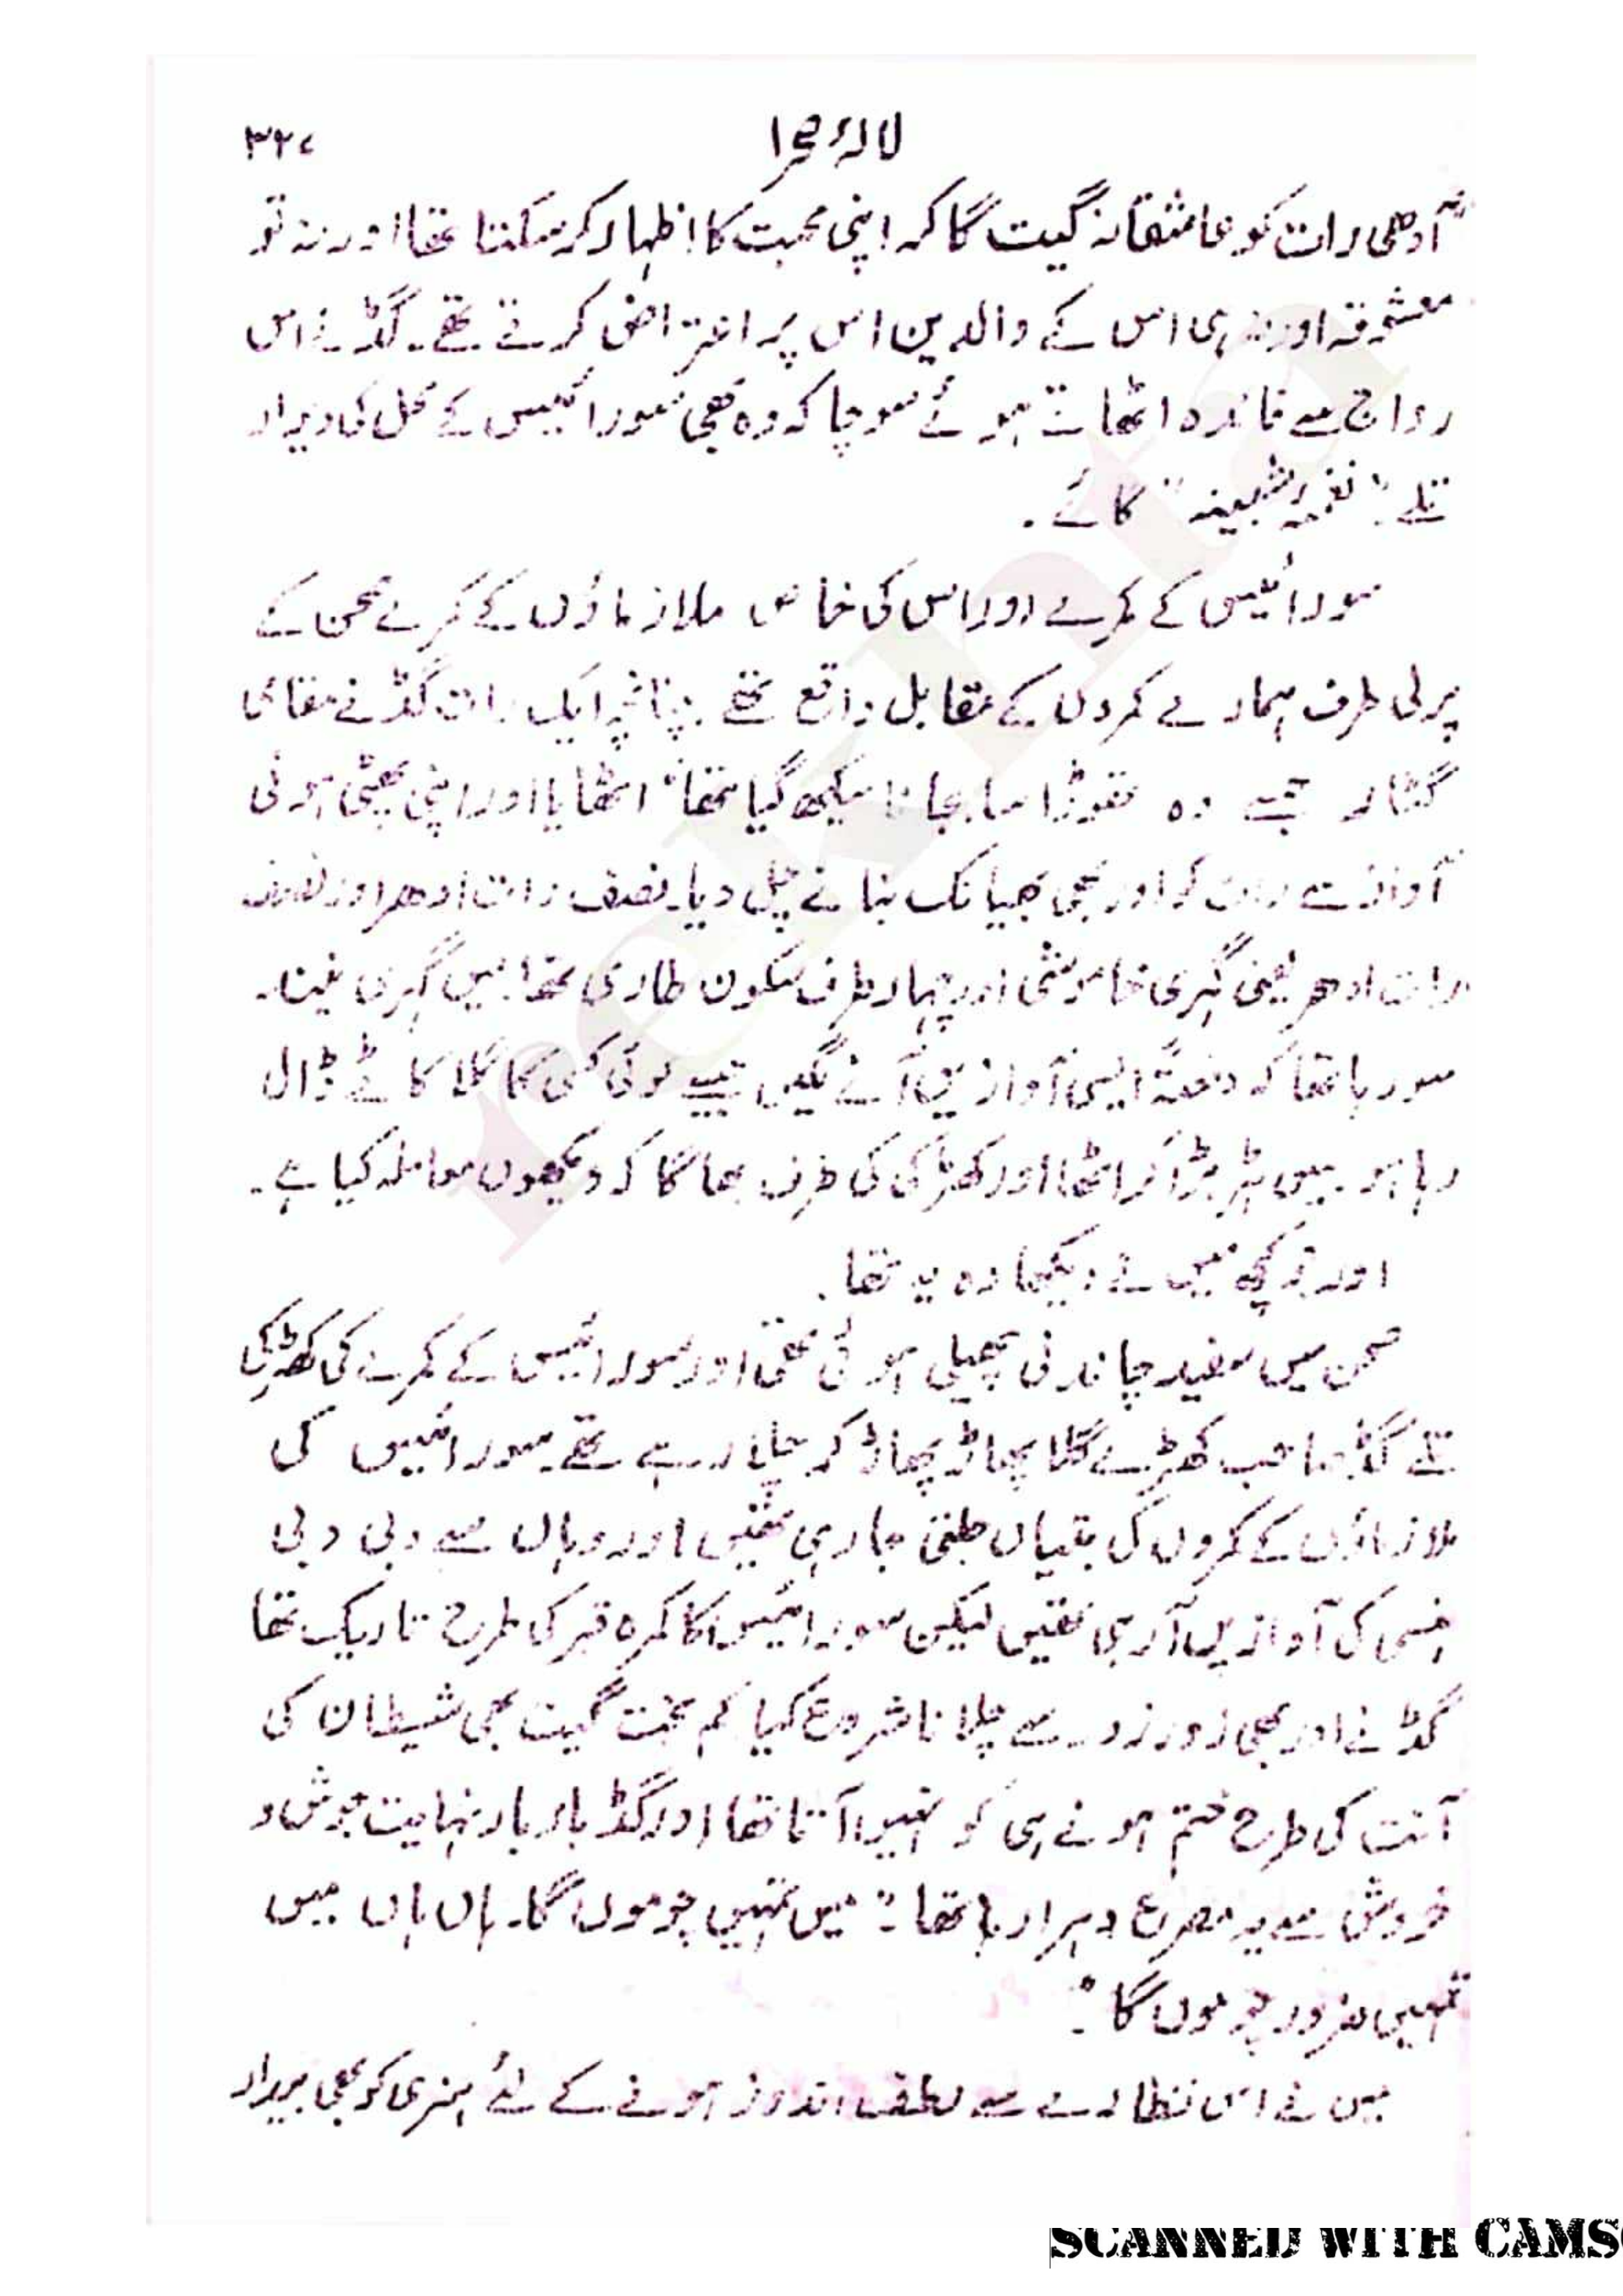 لالۂ صحرا ۳۲۷
آدھی رات کو عاشقانہ گیت گا کر اپنی محبت کا اظہار کر سکتا تھا اور نہ تو
معشوقہ اور نہ ہی اس کے والدین اس پر اعتراض کرتے تھے۔ گڈ نے اس
رواج سے فائدہ اٹھاتے ہوئے سوچا کہ وہ بھی سورائیس کے محل کی دیوار
تلے "نغمۂ شبینہ" گائے۔
سورائیس کے کمرے اور اس کی خاص ملازماؤں کے کمرے صحن کے
پرلی طرف ہمارے کمروں کے مقابل واقع تھے۔ چنانچہ ایک رات گڈ نے مقامی
گٹار جسے وہ تھوڑا سا بجانا سیکھ گیا تھا، اٹھایا اور اپنی پھٹی ہوئی
آواز سے رات کو اور بھی بھیانک بنانے چل دیا۔ نصف رات ادھر اور نصف
رات ادھر یعنی گہری خاموشی اور چہار طرف سکون طاری تھا۔ میں گہری نیند
سو رہا تھا کہ دفعتاً ایسی آوازیں آنے لگیں جیسے کوئی کسی کا گلا کاٹے ڈال
رہا ہو۔ میں ہڑبڑا کر اٹھا اور کھڑکی کی طرف بھاگا کہ دیکھوں معاملہ کیا ہے۔
اور جو کچھ میں نے دیکھا وہ یہ تھا۔
صحن میں سفید چاندنی پھیلی ہوئی تھی اور سورائیس کے کمرے کی کھڑکی
تلے گڈ صاحب کھڑے گلا پھاڑ پھاڑ کر چلا رہے تھے۔ سورائیس کی
ملازماؤں کے کمروں کی بتیاں جلتی جا رہی تھیں اور وہاں سے دبی دبی
ہنسی کی آوازیں آ رہی تھیں لیکن سورائیس کا کمرہ قبر کی طرح تاریک تھا
گڈ نے اور بھی زور زور سے چلانا شروع کیا کم بخت گیت بھی شیطان کی
آنت کی طرح ختم ہونے ہی کو نہیں آتا تھا اور گڈ بار بار نہایت جوش و
خروش سے یہ مصرع دہرا رہا تھا۔ "میں تمہیں چوموں گا۔ ہاں ہاں میں
تمہیں ضرور چوموں گا"۔
میں نے اس نظارے سے لطف اندوز ہونے کے لئے ہنری کو بھی بیدار
rekhta
SCANNED WITH CAMS